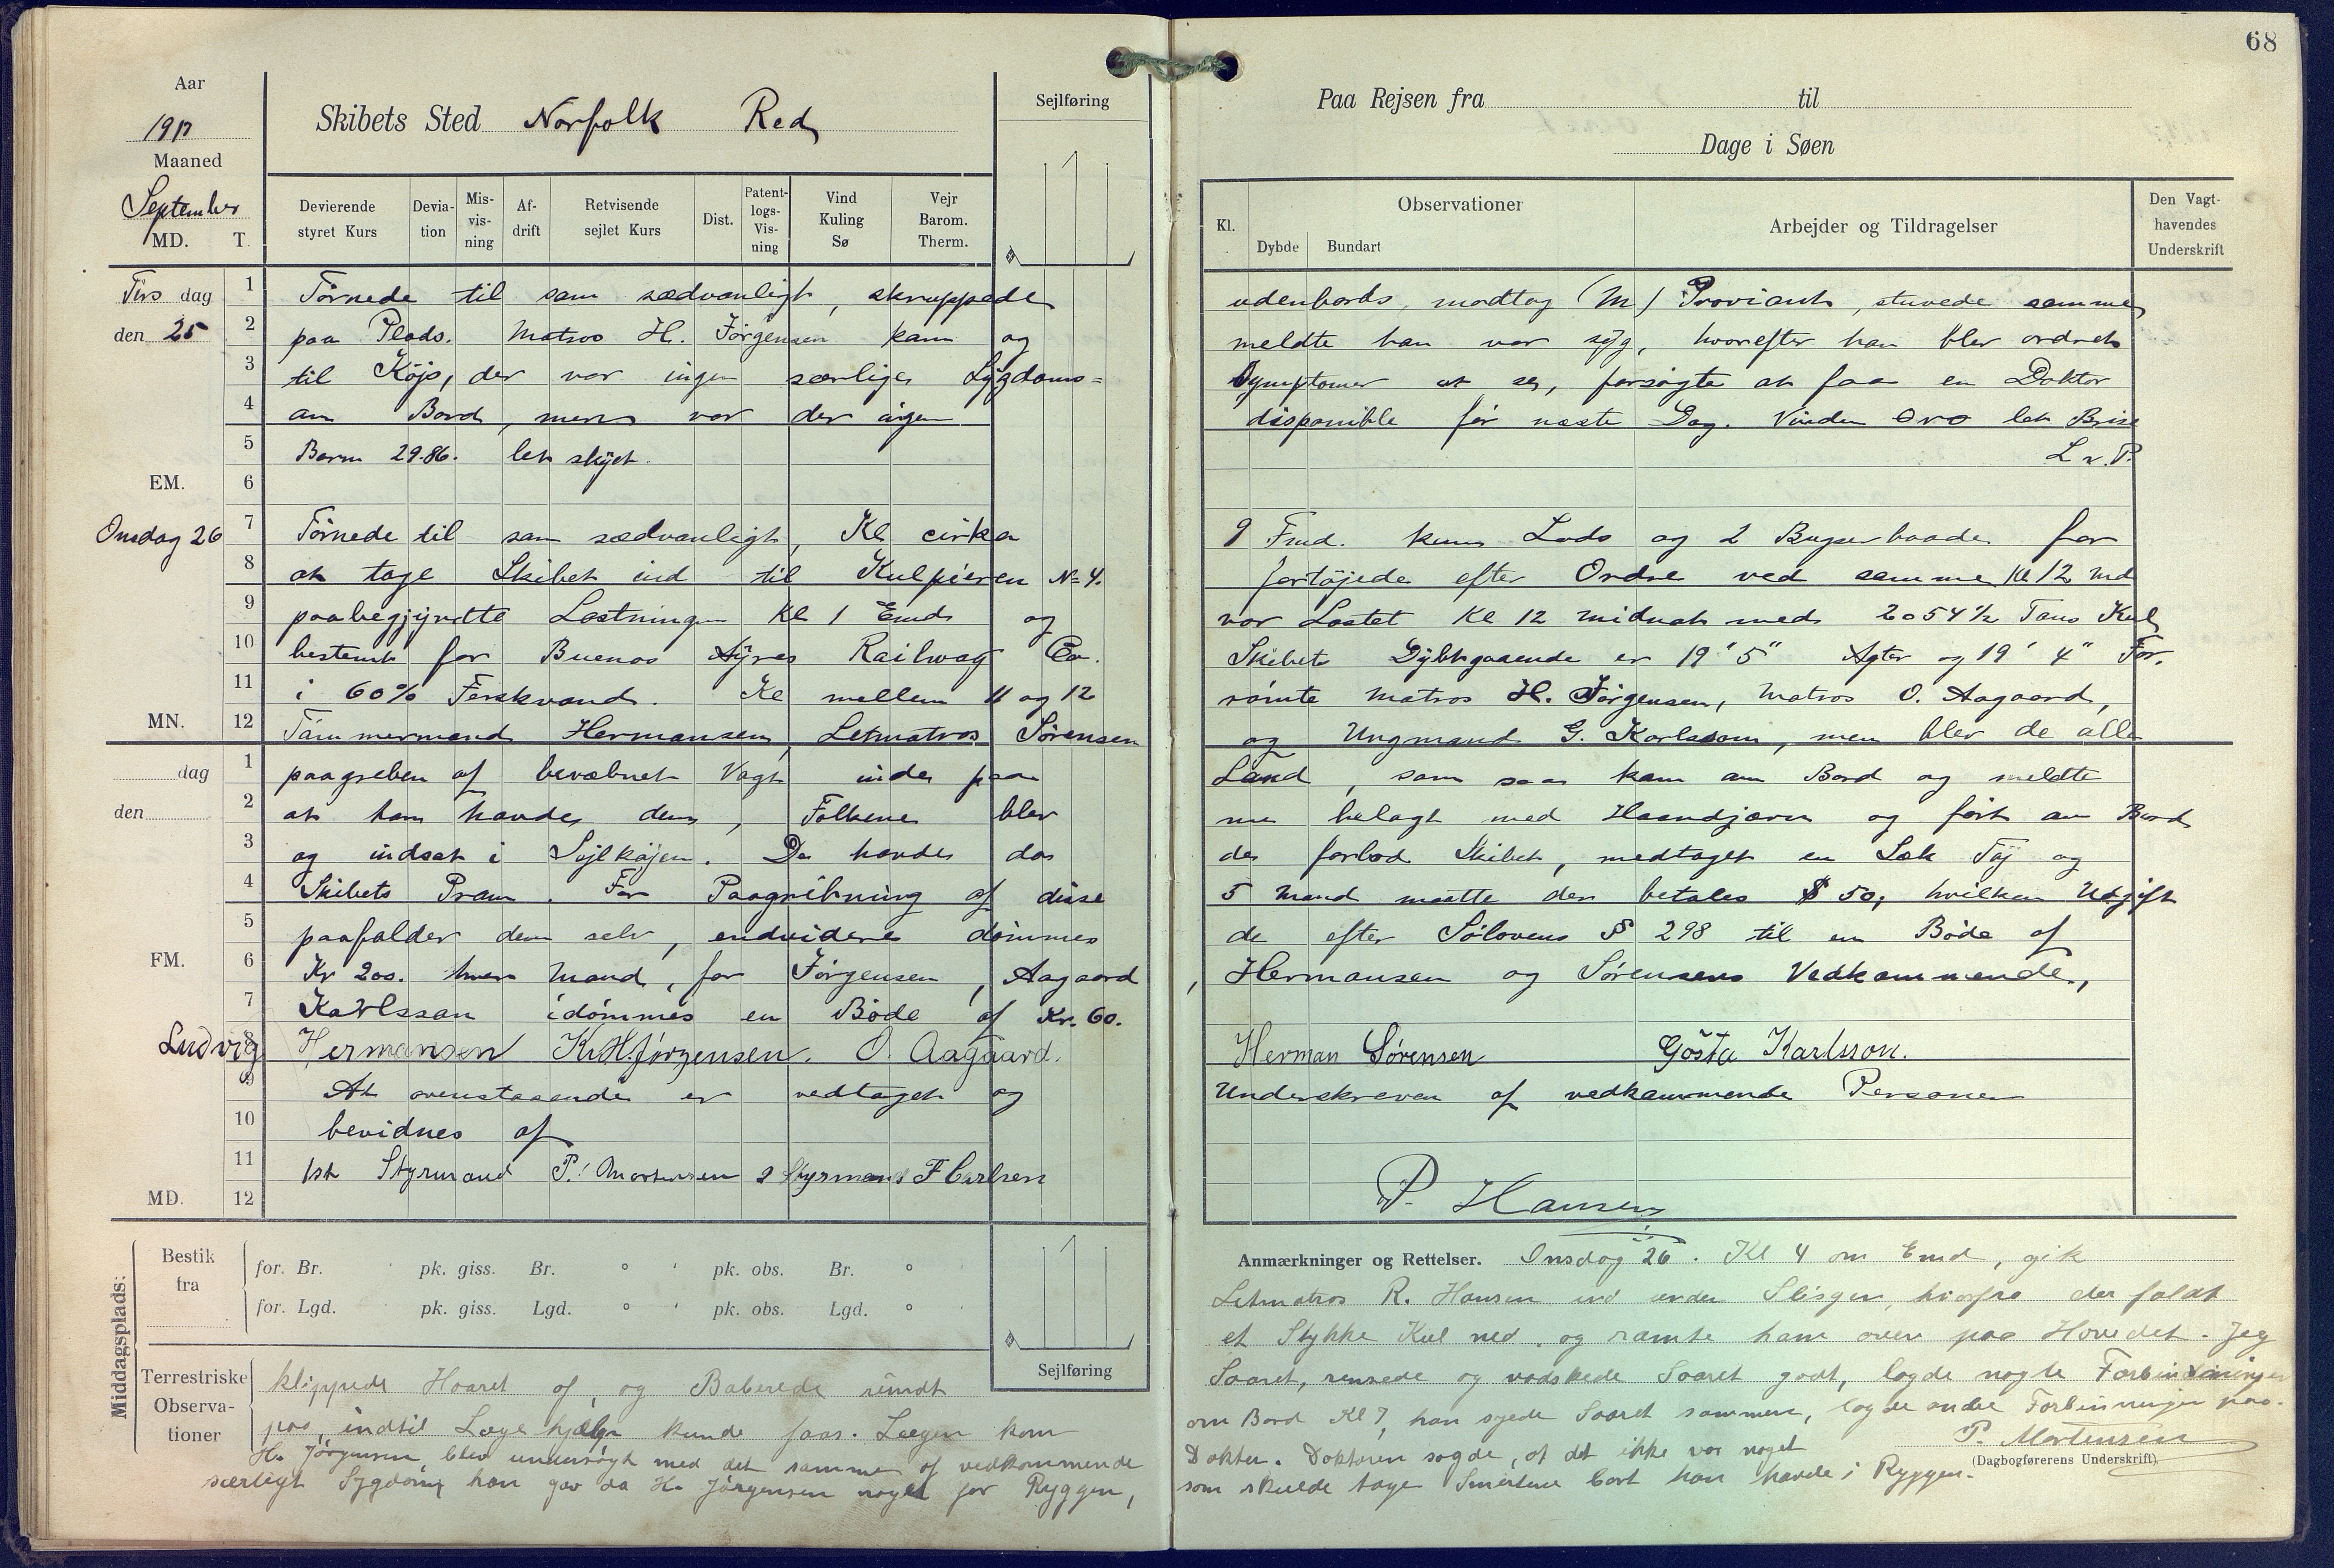 68
Aar
1917
Maaned
September
MD. T.
Skibets Sted Norfolk Red
Sejlføring
Devierende styret Kurs
Devia-tion
Mis-vis-ning
Af-drift
Retvisende sejlet Kurs
Dist.
Patent-logs-Vis-ning
Vind Kuling Sø
Vejr Barom. Therm.
Paa Rejsen fra til
Dage i Søen
Kl.
Observationer
Dybde Bundart
Arbejder og Tildragelser
Den Vagt-havendes Underskrift
Tirs dag
den 25
1 Törnede til som sædvanligt, skruppede udenbords, modtog (M) Proviant, stuvede samme
2 paa Plads. Matros H. Jörgensen kom og meldte han var syg, hvorefter han blev ordret
3 til Köjs, der var ingen særlige Sygdoms= Symptomer at se, forsögte at faa en Doktor
4 om Bord, men var der ingen disponible för næste Dag. Vinden OVO let Brise
5 Barm 29.86. let skyet. L v. P.
EM. 6
Onsdag 26
7 Törnede til som sædvanligt, Kl cirka 9 Fmd. kom Lods og 2 Bugserbaade for
8 at tage Skibet ind til Kulpieren No 4. fortöjede efter Ordre ved samme Kl 12 Md
9 paabegjyndte Lastningen Kl 1 Emd og var Lastet Kl 12 midnat med 2054 1/2 Tons Kul
10 bestemt for Buenos Ayres Railway Co. Skibets Dybtgaaende er 19' 5" Agter og 19' 4" For.
11 i 60% Ferskvand. Kl mellem 11 og 12 römte Matros H. Jörgensen, Matros O. Aagaard,
MN. 12 Tömmermand Hermansen, Letmatros Sörensen og Ungmand G. Karlsson, men blev de alle
dag
den
1 paagreben af bevæbnet Vagt inde paa Land, som saa kom om Bord og meldte
2 at han havde dem, Folkene blev nu belagt med Haandjærn og fört om Bord
3 og indsat i Sejlköjen. De havde da de forlod Skibet, medtaget en Sæk Töj og
4 Skibets Pram. For Paagribning af disse 5 Mand maatte der betales $ 50, hvilken Udgift
5 paafalder dem selv, endvidere dömmes de efter Sölovens § 298 til en Böde af
FM. 6 Kr 200. hver Mand, for Jörgensen, Aagaard, Hermansen og Sörensens Vedkommende,
7 Karlsson idömmes en Böde af Kr. 60.
8 Ludvig Hermansen K. H. Jørgensen. O. Aagaard. Herman Sørensen Gösta Karlsson.
9 At ovenstaaende er vedtaget og Underskreven af vedkommende Personer
10 bevidnes af
11 1st Styrmand P. Mortensen 2 Styrmand F Carlsen
MD. 12 P. Hansen
Middagsplads:
Bestik fra
for. Br. ' pk. giss. Br. ° ' pk. obs. Br. °
for. Lgd. ' pk. giss. Lgd. ° ' pk. obs. Lgd. °
Sejlføring
Terrestriske Observa-tioner
Anmærkninger og Rettelser. Onsdag 26. Kl 4 om Emd, gik
Letmatros R. Hansen ind under Slisgen, hvorfra der faldt
et Stykke Kul ned, og ramte ham oven paa Hovedet. Jeg
klippede Haaret af, og Baberede rundt Saaret, rensede og vadskede Saaret godt, lagde nogle Forbindinger
paa, indtil Lægehjælp kunde faas. Lægen kom om Bord Kl 7, han syede Saaret sammen, lagde andre Forbinninger paa.
H. Jörgensen, blev undersögt med det samme af vedkommende Doktor. Doktoren sagde, at det ikke var noget
særligt Sygdom, han gav da H. Jörgensen noget for Ryggen, som skulde tage Smerterne bort han havde i Ryggen.
P. Mortensen
(Dagbogførerens Underskrift)